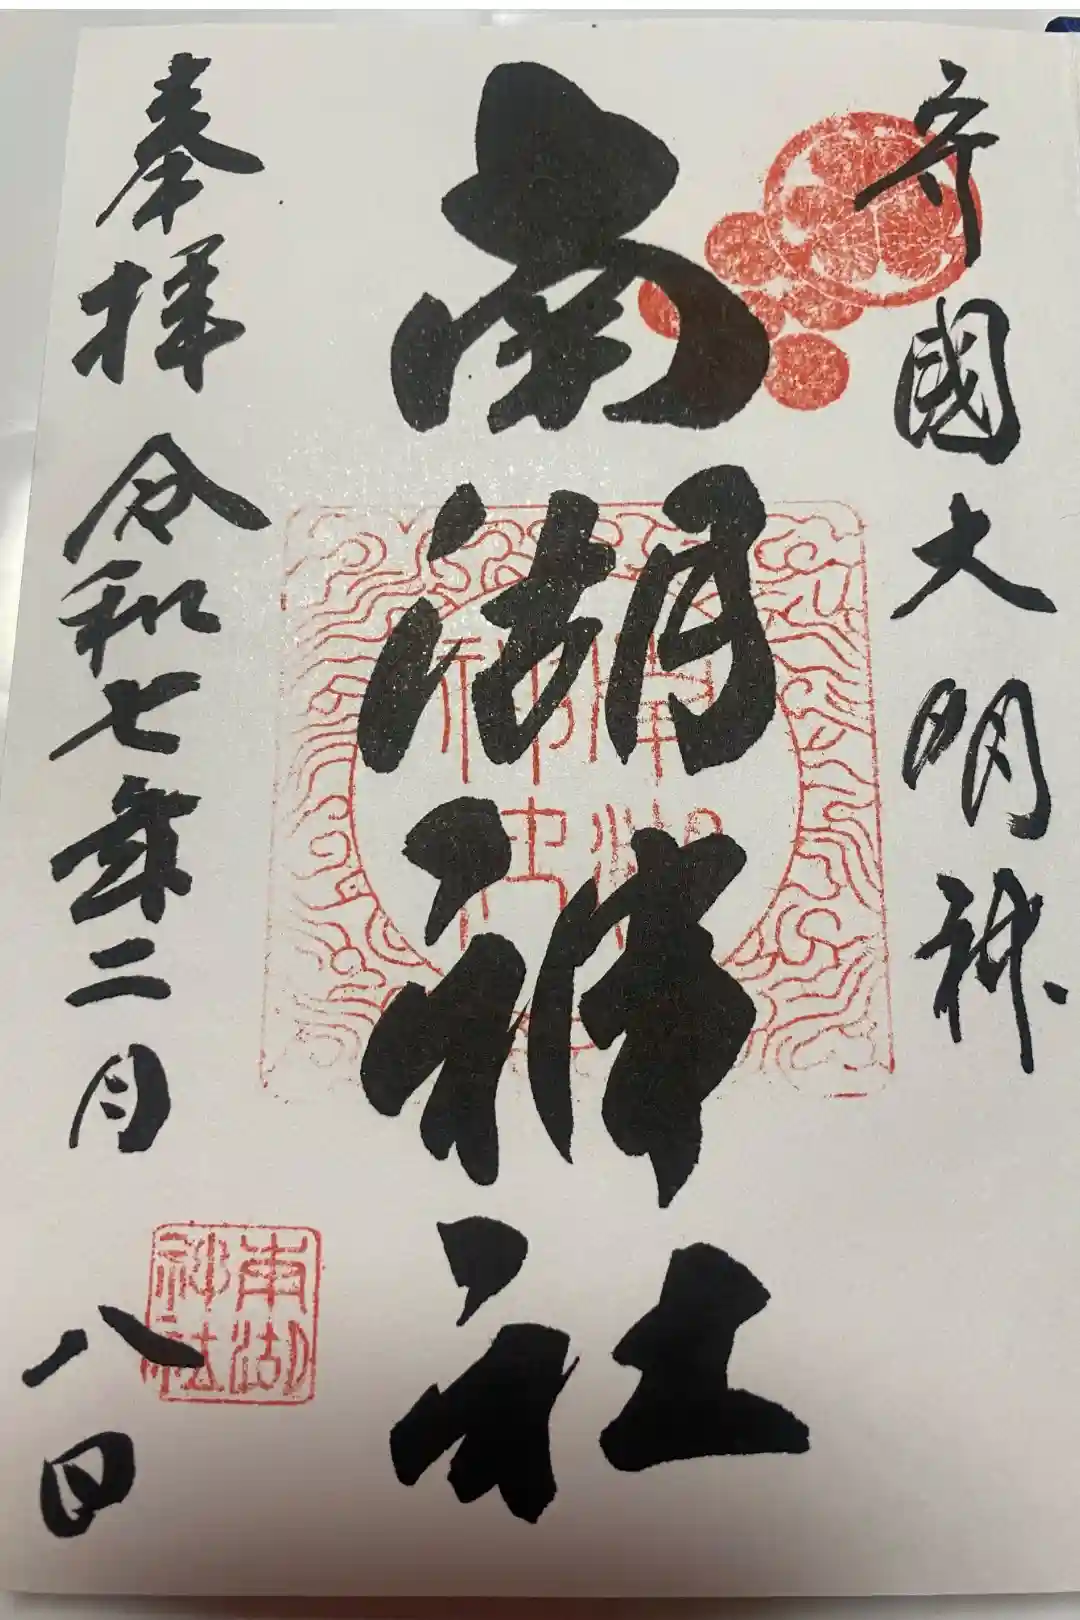 守國大明神
南湖神社
奉拝 令和七年二月八日
南湖
神社
南湖
神社